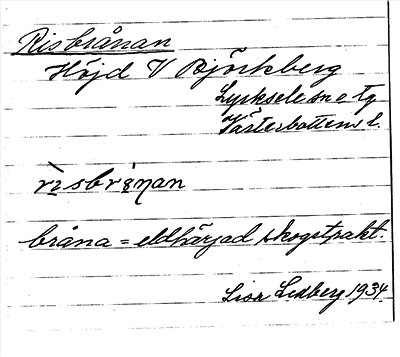 Risbrånan
Höjd V Björkberg
Lycksele sn o tg
Västerbottens l.
bråna = eldhärjad skogstrakt.
Lisa Lidberg 1934